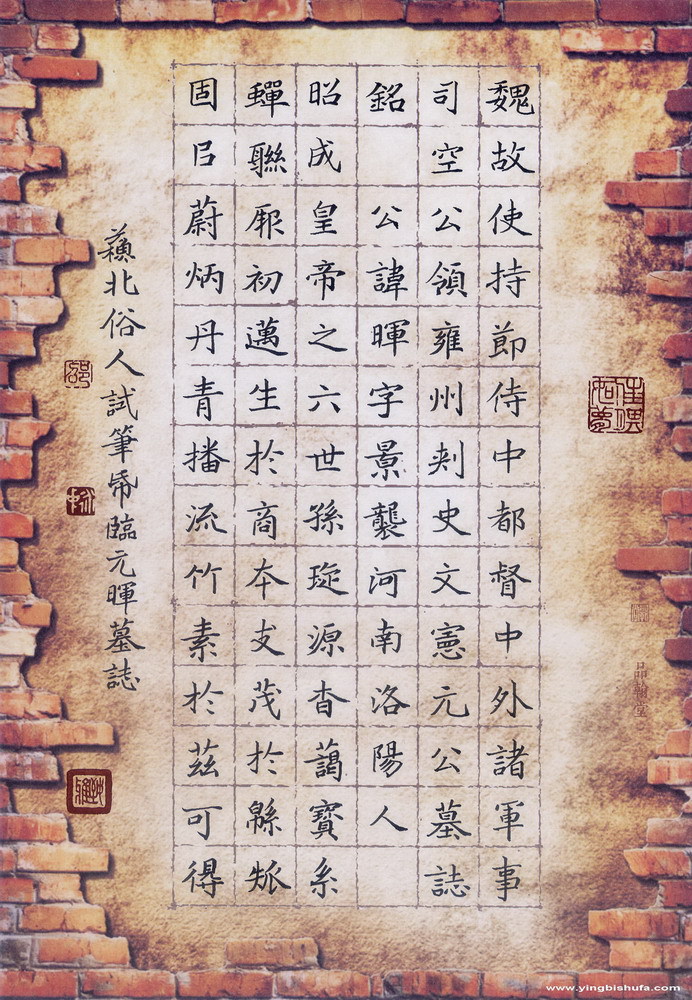 魏故使持節侍中都督中外諸軍事
司空公領雍州刾史文憲元公墓誌
銘 公諱暉字景襲河南洛陽人
昭成皇帝之六世孫琁源杳藹寶系
蟬聯厥初邁生於商夲支茂於緜瓞
固㠯蔚炳丹青播流竹素於茲可得
蘓北俗人試筆帋臨元暉墓誌
品翰堂
www.yingbishufa.com